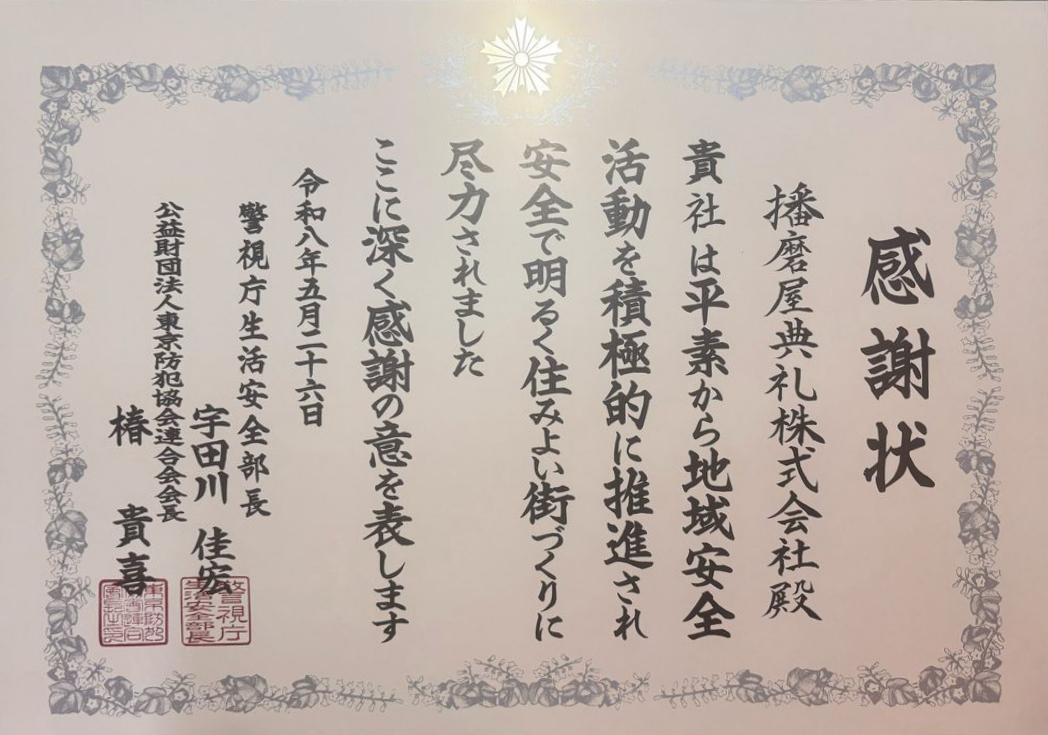 感謝状
播磨屋典礼株式会社殿
貴社は平素から地域安全
活動を積極的に推進され
安全で明るく住みよい街づくりに
尽力されました
ここに深く感謝の意を表します
令和八年五月二十六日
警視庁生活安全部長
宇田川 佳宏
公益財団法人東京防犯協会連合会会長
椿 貴喜
警視庁
生活安全部長